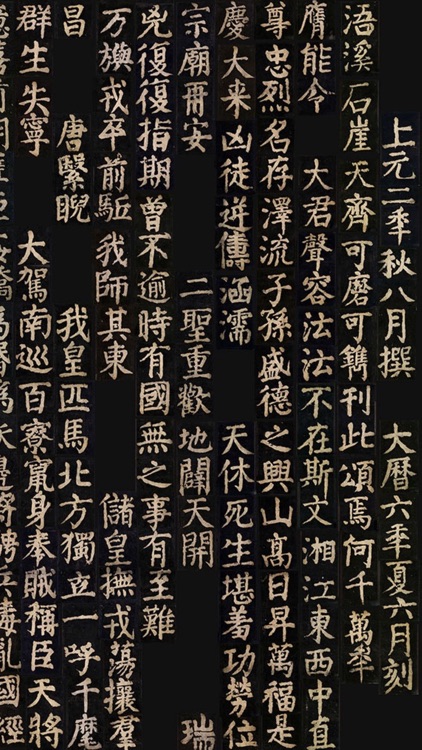 上元二年秋八月撰 大曆六年夏六月刻
浯溪石崖天齊可磨可鐫刊此頌焉何千萬年
膺能令 大君聲容法法不在斯文湘江東西中直
尊忠烈名存澤流子孫盛德之興山高日昇萬福是
慶大来凶徒逆儔涵濡 天休死生堪羞功勞位
宗廟再安 二聖重歡地闢天開 瑞
兇復復指期曾不逾時有國無之事有至難
万旟戎卒前駈我師其東 儲皇撫戎蕩攘羣
昌 唐繄睨 我皇匹馬北方獨立一呼千麾
群生失寧 大駕南巡百寮竄身奉賊稱臣天將
兵毒亂國經